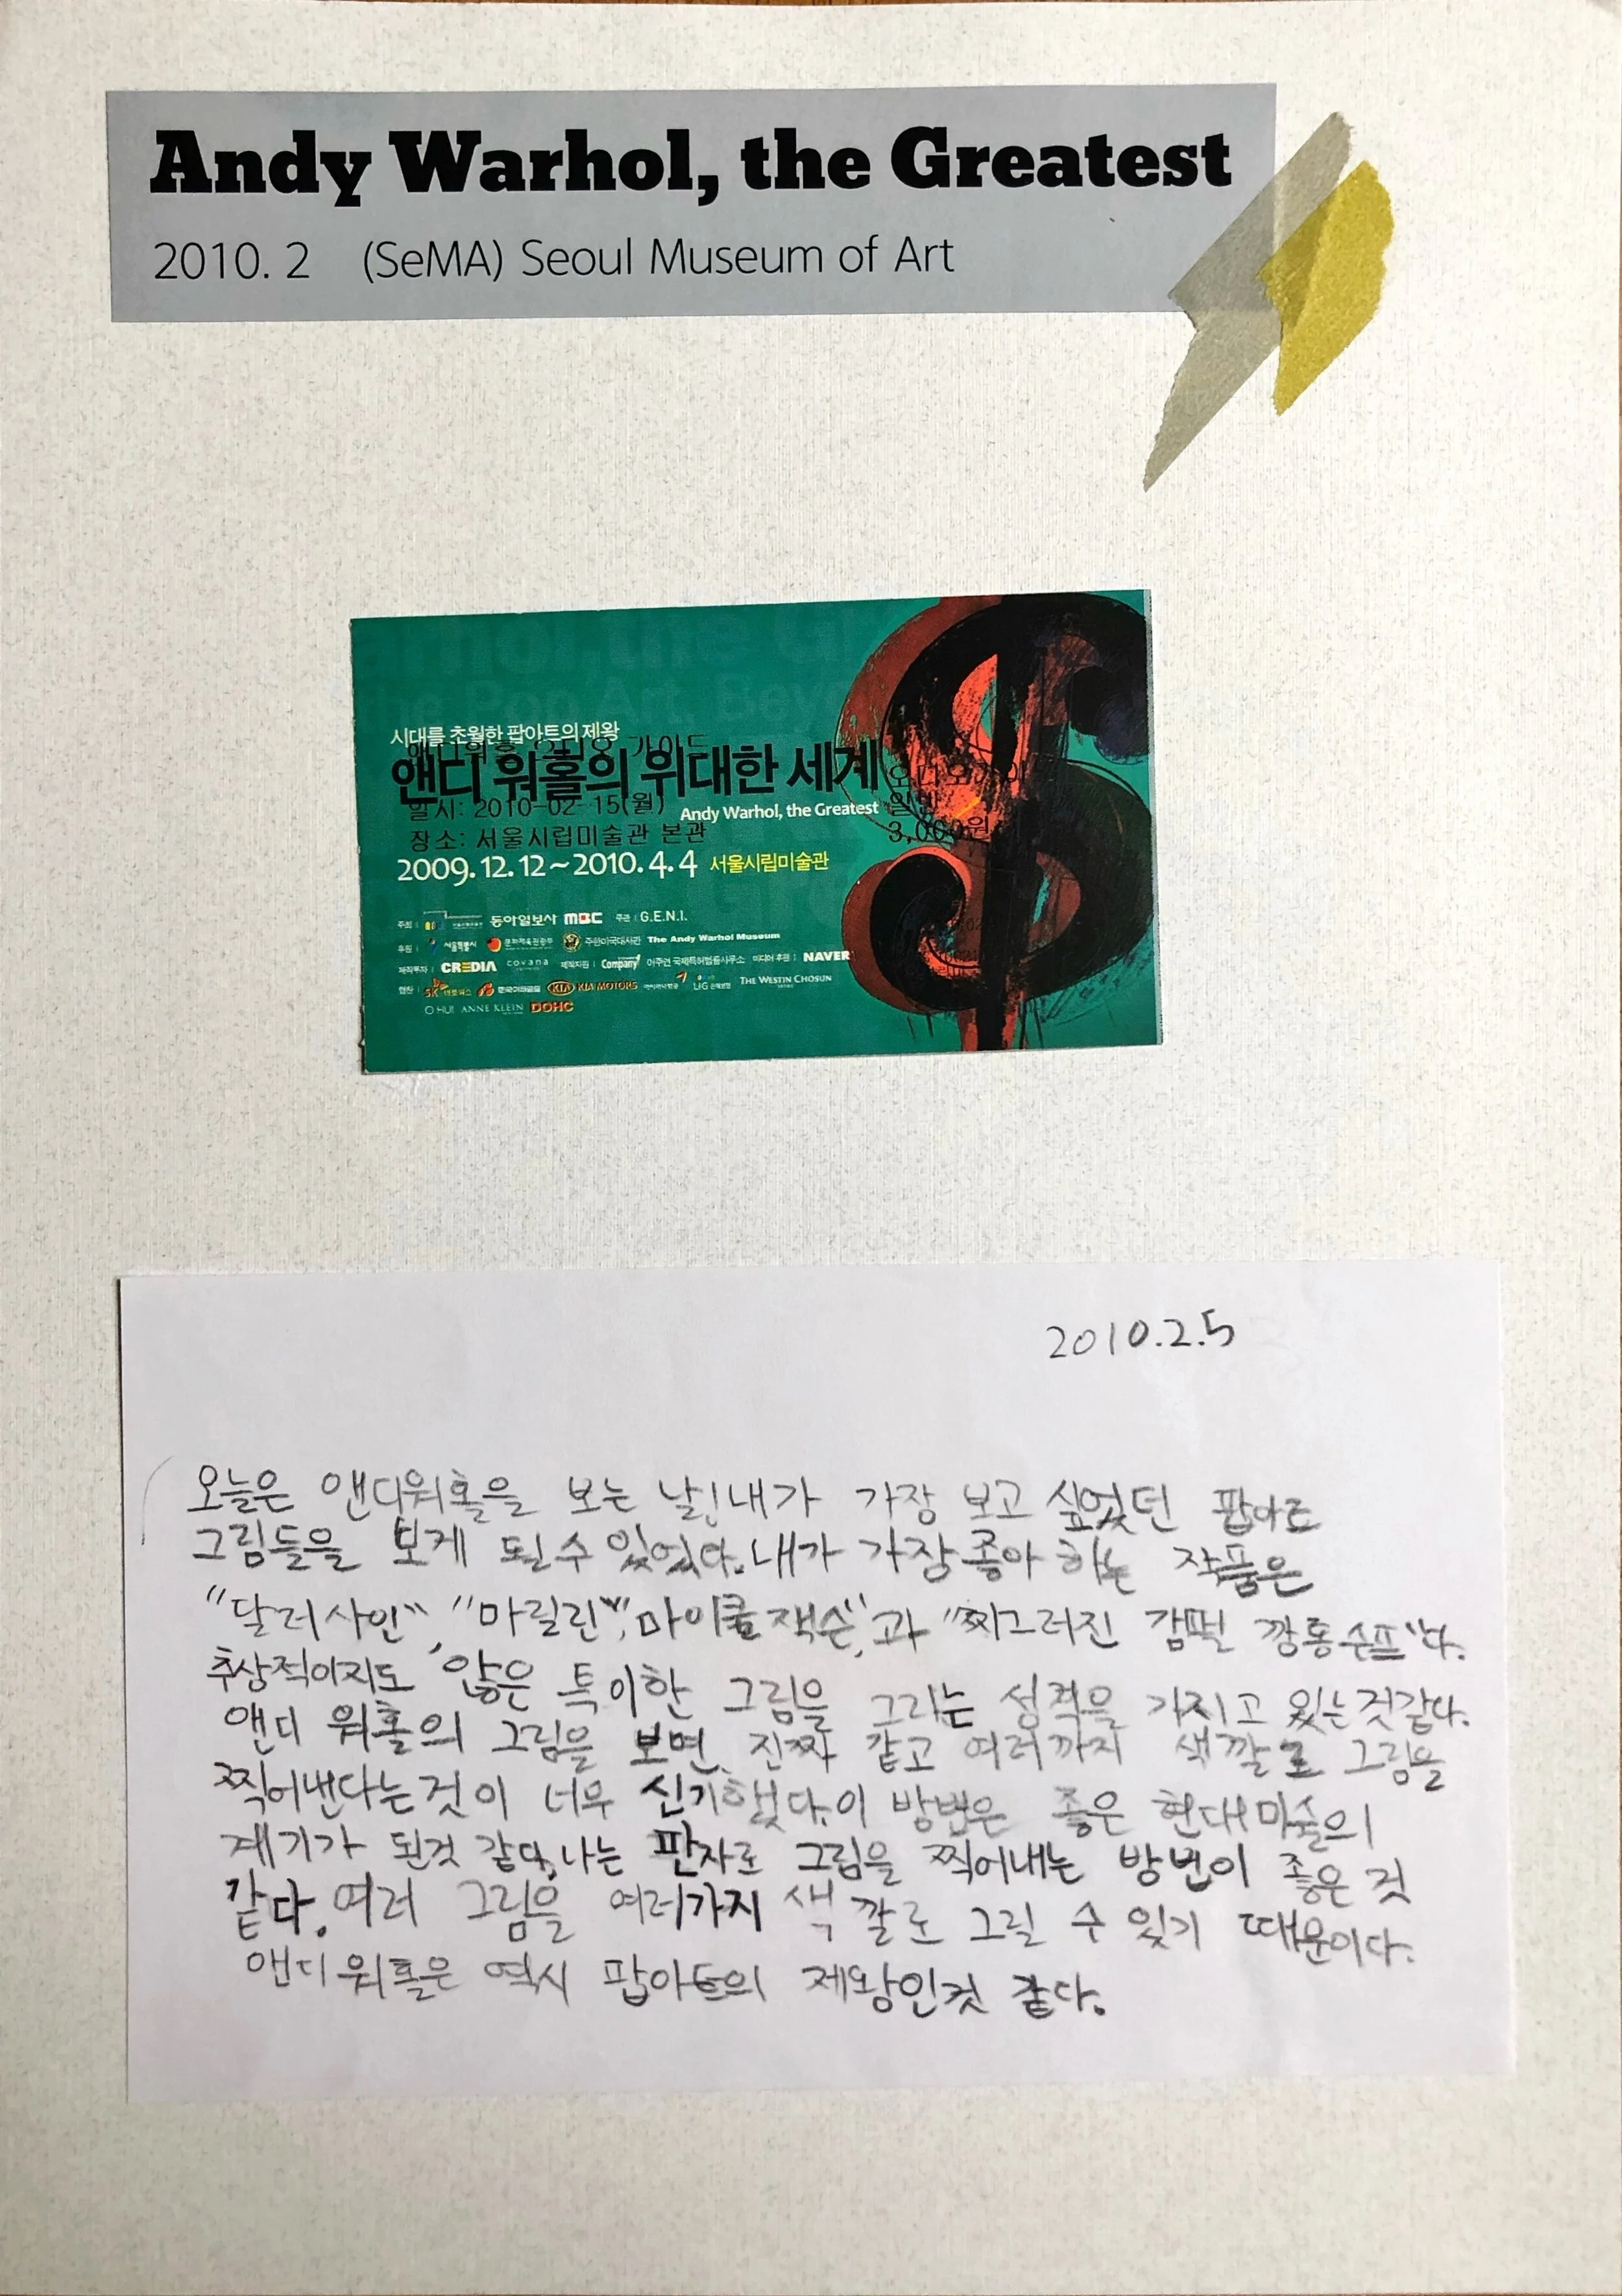 Andy Warhol, the Greatest
2010. 2 (SeMA) Seoul Museum of Art
시대를 초월한 팝아트의 제왕
앤디워홀 오디오 가이드
앤디 워홀의 위대한 세계
일시: 2010-02-15(월)
Andy Warhol, the Greatest
일반
3,000원
장소: 서울시립미술관 본관
2009. 12. 12 ~ 2010. 4. 4 서울시립미술관
주최 동아일보사 MBC 주관 G.E.N.I.
후원 서울특별시 문화체육관광부 주한미국대사관 The Andy Warhol Museum
제작투자 CREDIA covana 제작지원 Company 아주연 국제특허법률사무소 미디어 후원 NAVER
협찬 SK KIA KIA MOTORS 아시아나항공 LIG 손해보험 THE WESTIN CHOSUN
O HUI ANNE KLEIN DOHC
2010.2.5
오늘은 앤디워홀을 보는 날! 내가 가장 보고 싶었던 팝아트
그림들을 보게 될수 있었다. 내가 가장 좋아 하는 작품은
"달러사인", "마릴린", "마이클 잭슨", 과 "찌그러진 캄펠 깡통 수프"다.
추상적이지도 않은 특이한 그림을 그리는 성격을 가지고 있는것같다.
앤디 워홀의 그림을 보면, 진짜 같고 여러까지 색깔로 그림을
찍어낸다는것이 너무 신기했다. 이 방법은 좋은 현대미술의
계기가 된것 같다. 나는 판자로 그림을 찍어내는 방법이 좋은 것
같다. 여러 그림을 여러가지 색깔로 그릴 수 있기 때문이다.
앤디워홀은 역시 팝아트의 제왕인것 같다.